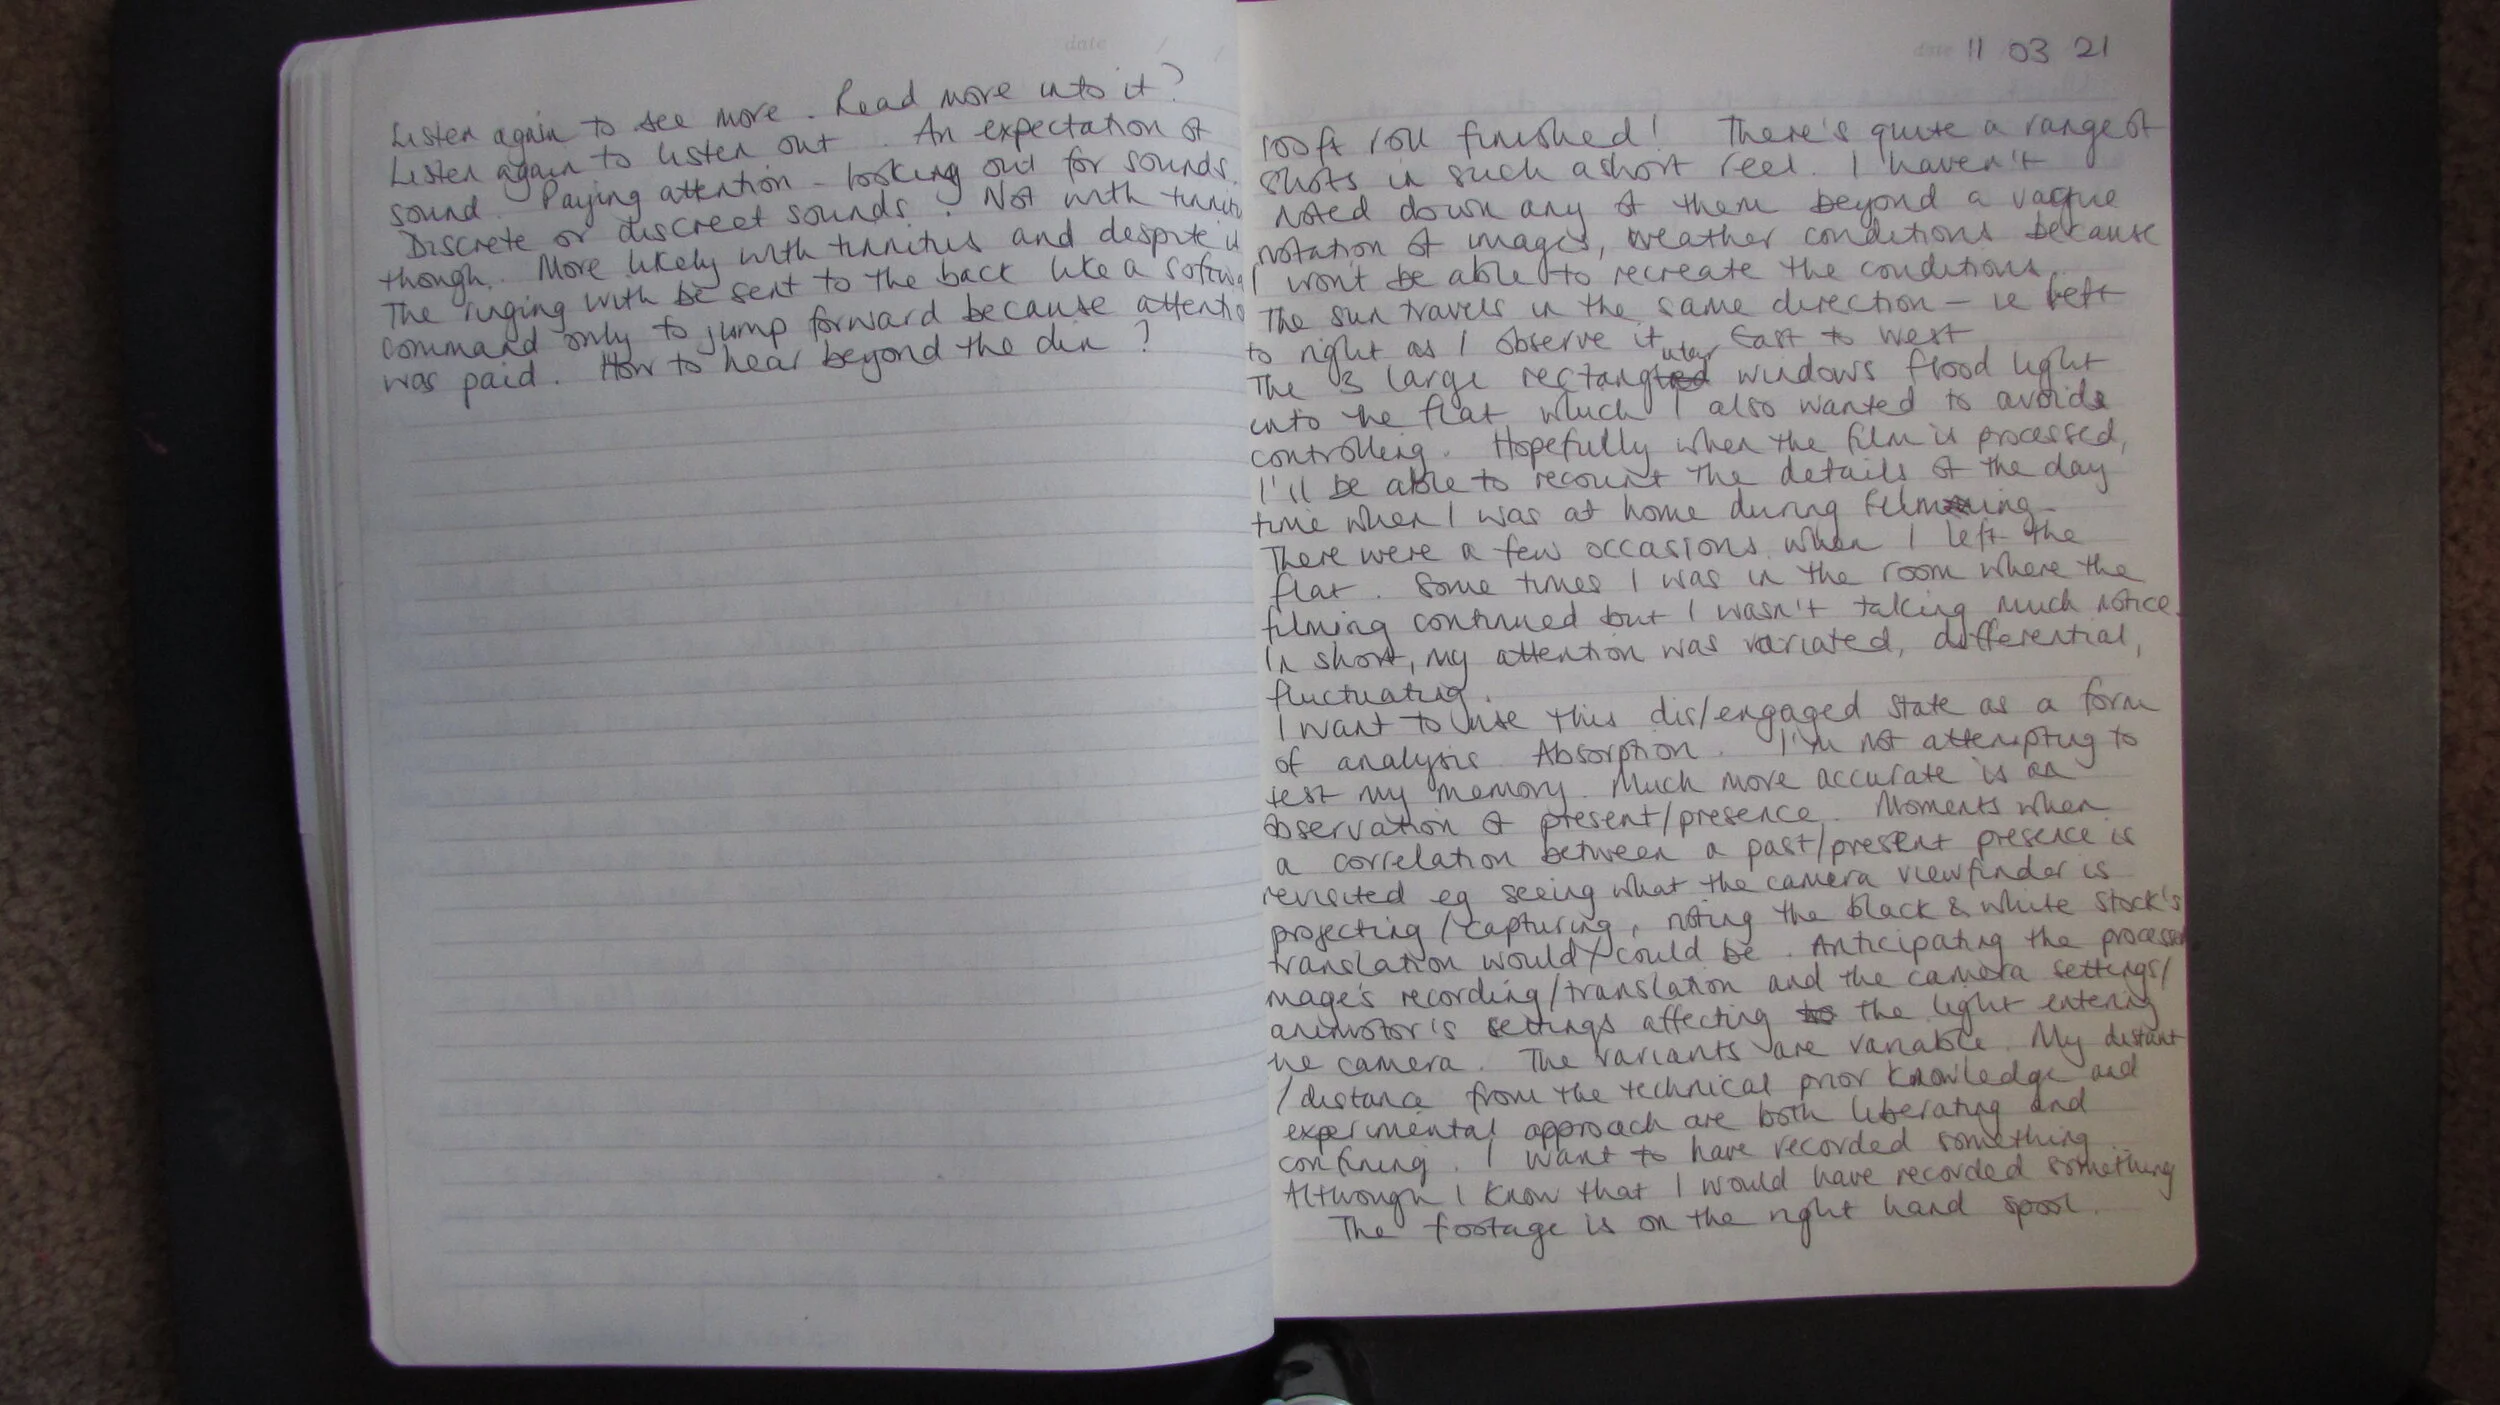 date / /
Listen again to see more. Read more into it?
Listen again to listen out. An expectation of
sound. Paying attention - looking out for sounds.
Discrete or discreet sounds. Not with tinnitu
though. More likely with tinnitus and despite it
The ringing with be sent to the back like a softwa
command only to jump forward because attentio
was paid. How to hear beyond the din?
date 11 03 21
100ft roll finished! There's quite a range of
shots in such a short reel. I haven't
noted down any of them beyond a vague
notation of images, weather conditions because
I won't be able to recreate the conditions.
The sun travels in the same direction - ie left
to right as I observe it, East to West
The 3 large rectangular windows flood light
into the flat which I also wanted to avoid
controlling. Hopefully when the film is processed,
I'll be able to recount the details of the day
time when I was at home during filming.
There were a few occasions when I left the
flat. Some times I was in the room where the
filming continued but I wasn't taking much notice.
In short, my attention was variated, differential,
fluctuating.
I want to use this dis/engaged state as a form
of analysis. Absorption. I'm not attempting to
test my memory. Much more accurate is an
observation of present/presence. Moments when
a correlation between a past/present presence is
revisited eg seeing what the camera viewfinder is
projecting/capturing, noting the black & white stock's
translation would/could be. Anticipating the processed
mage's recording/translation and the camera settings/
animotor's settings affecting the light entering
he camera. The variants are variable. My distant
/distance from the technical prior knowledge and
experimental approach are both liberating and
confining. I want to have recorded something.
Although I know that I would have recorded something
The footage is on the right hand spool.